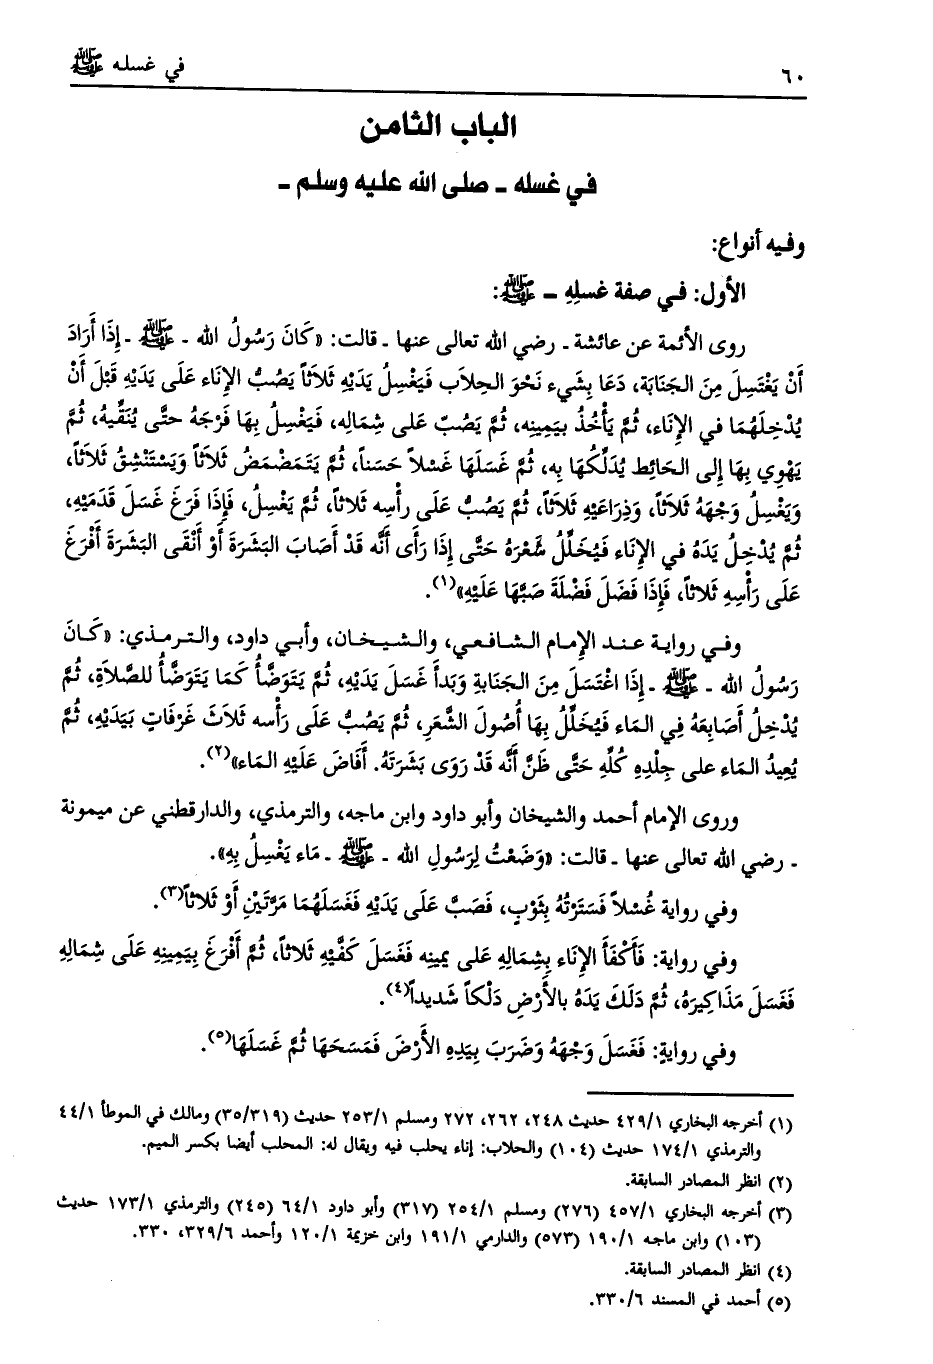 ٦٠ في غسله ﷺ
الباب الثامن
في غسله ـ صلى الله عليه وسلم ـ
وفيه أنواع:
الأول: في صفة غسلِهِ ـ ﷺ:
روى الأئمة عن عائشة ـ رضي الله تعالى عنها ـ قالت: «كَانَ رَسُولُ الله ـ ﷺ ـ إِذَا أَرَادَ
أَنْ يَغْتَسِلَ مِنَ الجَنَابَة، دَعَا بِشَيء نَحْوَ الحِلاَب فَيَغْسِلُ يَدَيْهِ ثَلاثاً يَصُبُّ الإِنَاء عَلَى يَدَيْهِ قَبْلَ أَنْ
يُدْخِلَهُمَا في الإِنَاء، ثُمَّ يَأْخُذُ بيَمِينِه، ثُمَّ يَصُبّ عَلى شِمَالِه، فَيَغْسِلُ بِهَا فَرْجَهُ حتَّى يُنَقِّيهُ، ثُمَّ
يَهْوِي بِهَا إلى الحَائِط يُدَلِّكُهَا بِه، ثُمَّ غَسَلَهَا غَسْلاً حَسَناً، ثُمَّ يَتَمَضْمَضُ ثَلاثاً وَيَسْتَنْشِقُ ثَلاثاً،
وَيَغْسِلُ وَجْهَهُ ثَلاثاً، وَذِرَاعَيْهِ ثَلاثاً، ثُمَّ يَصُبُّ عَلى رَأْسِه ثَلاثاً، ثُمَّ يَغْسِلُ، فَإِذَا فَرَغَ غَسَلَ قَدَمَيْهِ،
ثُمَّ يُدْخِلُ يَدَهُ في الإِنَاء فَيُخَلِّلُ شَعْرَهُ حَتَّى إِذَا رَأَى أَنَّه قَدْ أَصَابَ البَشَرَةَ أَوْ أَنْقَى البَشَرَةَ أَفْرَغَ
عَلَى رَأْسِهِ ثَلاثاً، فَإِذَا فَضَلَ فَضْلَةً صَبَّهَا عَلَيْهِ»(١).
وفي رواية عند الإمام الشافعي، والشيخان، وأبي داود، والترمذي: «كَانَ
رَسُولُ الله ـ ﷺ ـ إِذَا اغْتَسَلَ مِنَ الجَنَابةِ وَبَدأَ غَسَلَ يَدَيْهِ، ثُمَّ يَتَوَضَّأُ كَمَا يَتَوَضَّأُ للصَّلاَةِ، ثُمَّ
يُدْخِلُ أَصَابِعَهُ فِي المَاء فَيُخَلِّلُ بِهَا أُصُولَ الشَّعَرِ، ثُمَّ يَصُبُّ عَلَى رَأْسه ثَلاَثَ غَرْفَاتٍ بَيَدَيْهِ، ثُمَّ
يُعِيدُ المَاء على جِلْدِهِ كُلِّهِ حَتَّى ظَنَّ أَنَّه قَدْ رَوَى بَشَرَتَهُ. أَفَاضَ عَلَيْهِ المَاء»(٢).
وروى الإمام أحمد والشيخان وأبو داود وابن ماجه، والترمذي، والدارقطني عن ميمونة
ـ رضي الله تعالى عنها ـ قالت: «وَضَعْتُ لِرَسُولِ الله ـ ﷺ ـ مَاء يَغْسِلُ بِهِ».
وفي رواية غُسْلاً فَسَتَرْتُهُ بِثَوْبٍ، فَصَبَّ عَلَى يَدَيْهِ فَغَسَلَهُمَا مَرَّتَيْنِ أَوْ ثَلاثاً(٣).
وفي رواية: فَأَكْفَأَ الإِنَاء بِشِمَالِهِ عَلى يمينِه فَغَسَلَ كَفَّيْهِ ثَلاثاً، ثُمَّ أَفْرِغَ بِيَمِينِهِ عَلَى شِمَالِهِ
فَغَسَلَ مَذَاكِيرَهُ، ثُمَّ دَلَكَ يَدَهُ بالأَرْضِ دَلْكاً شَدِيداً(٤).
وفي روايةٍ: فَغَسَلَ وَجْهَهُ وَضَرَبَ بِيَدِهِ الأَرْضَ فَمَسَحَهَا ثُمَّ غَسَلَهَا(٥).
(١) أخرجه البخاري ٤٢٩/١ حديث ٢٤٨، ٢٦٢، ٢٧٢ ومسلم ٢٥٣/١ حديث (٣٥/٣١٩) ومالك في الموطأ ٤٤/١
والترمذي ١٧٤/١ حديث (١٠٤) والحلاب: إناء يحلب فيه ويقال له: المحلب أيضا بكسر الميم.
(٢) انظر المصادر السابقة.
(٣) أخرجه البخاري ٤٥٧/١ (٢٧٦) ومسلم ٢٥٤/١ (٣١٧) وأبو داود ٦٤/١ (٢٤٥) والترمذي ١٧٣/١ حديث
(١٠٣) وابن ماجه ١٩٠/١ (٥٧٣) والدارمي ١٩١/١ وابن خزيمة ١٢٠/١ وأحمد ٣٢٩/٦، ٣٣٠.
(٤) انظر المصادر السابقة.
(٥) أحمد في المسند ٣٣٠/٦.